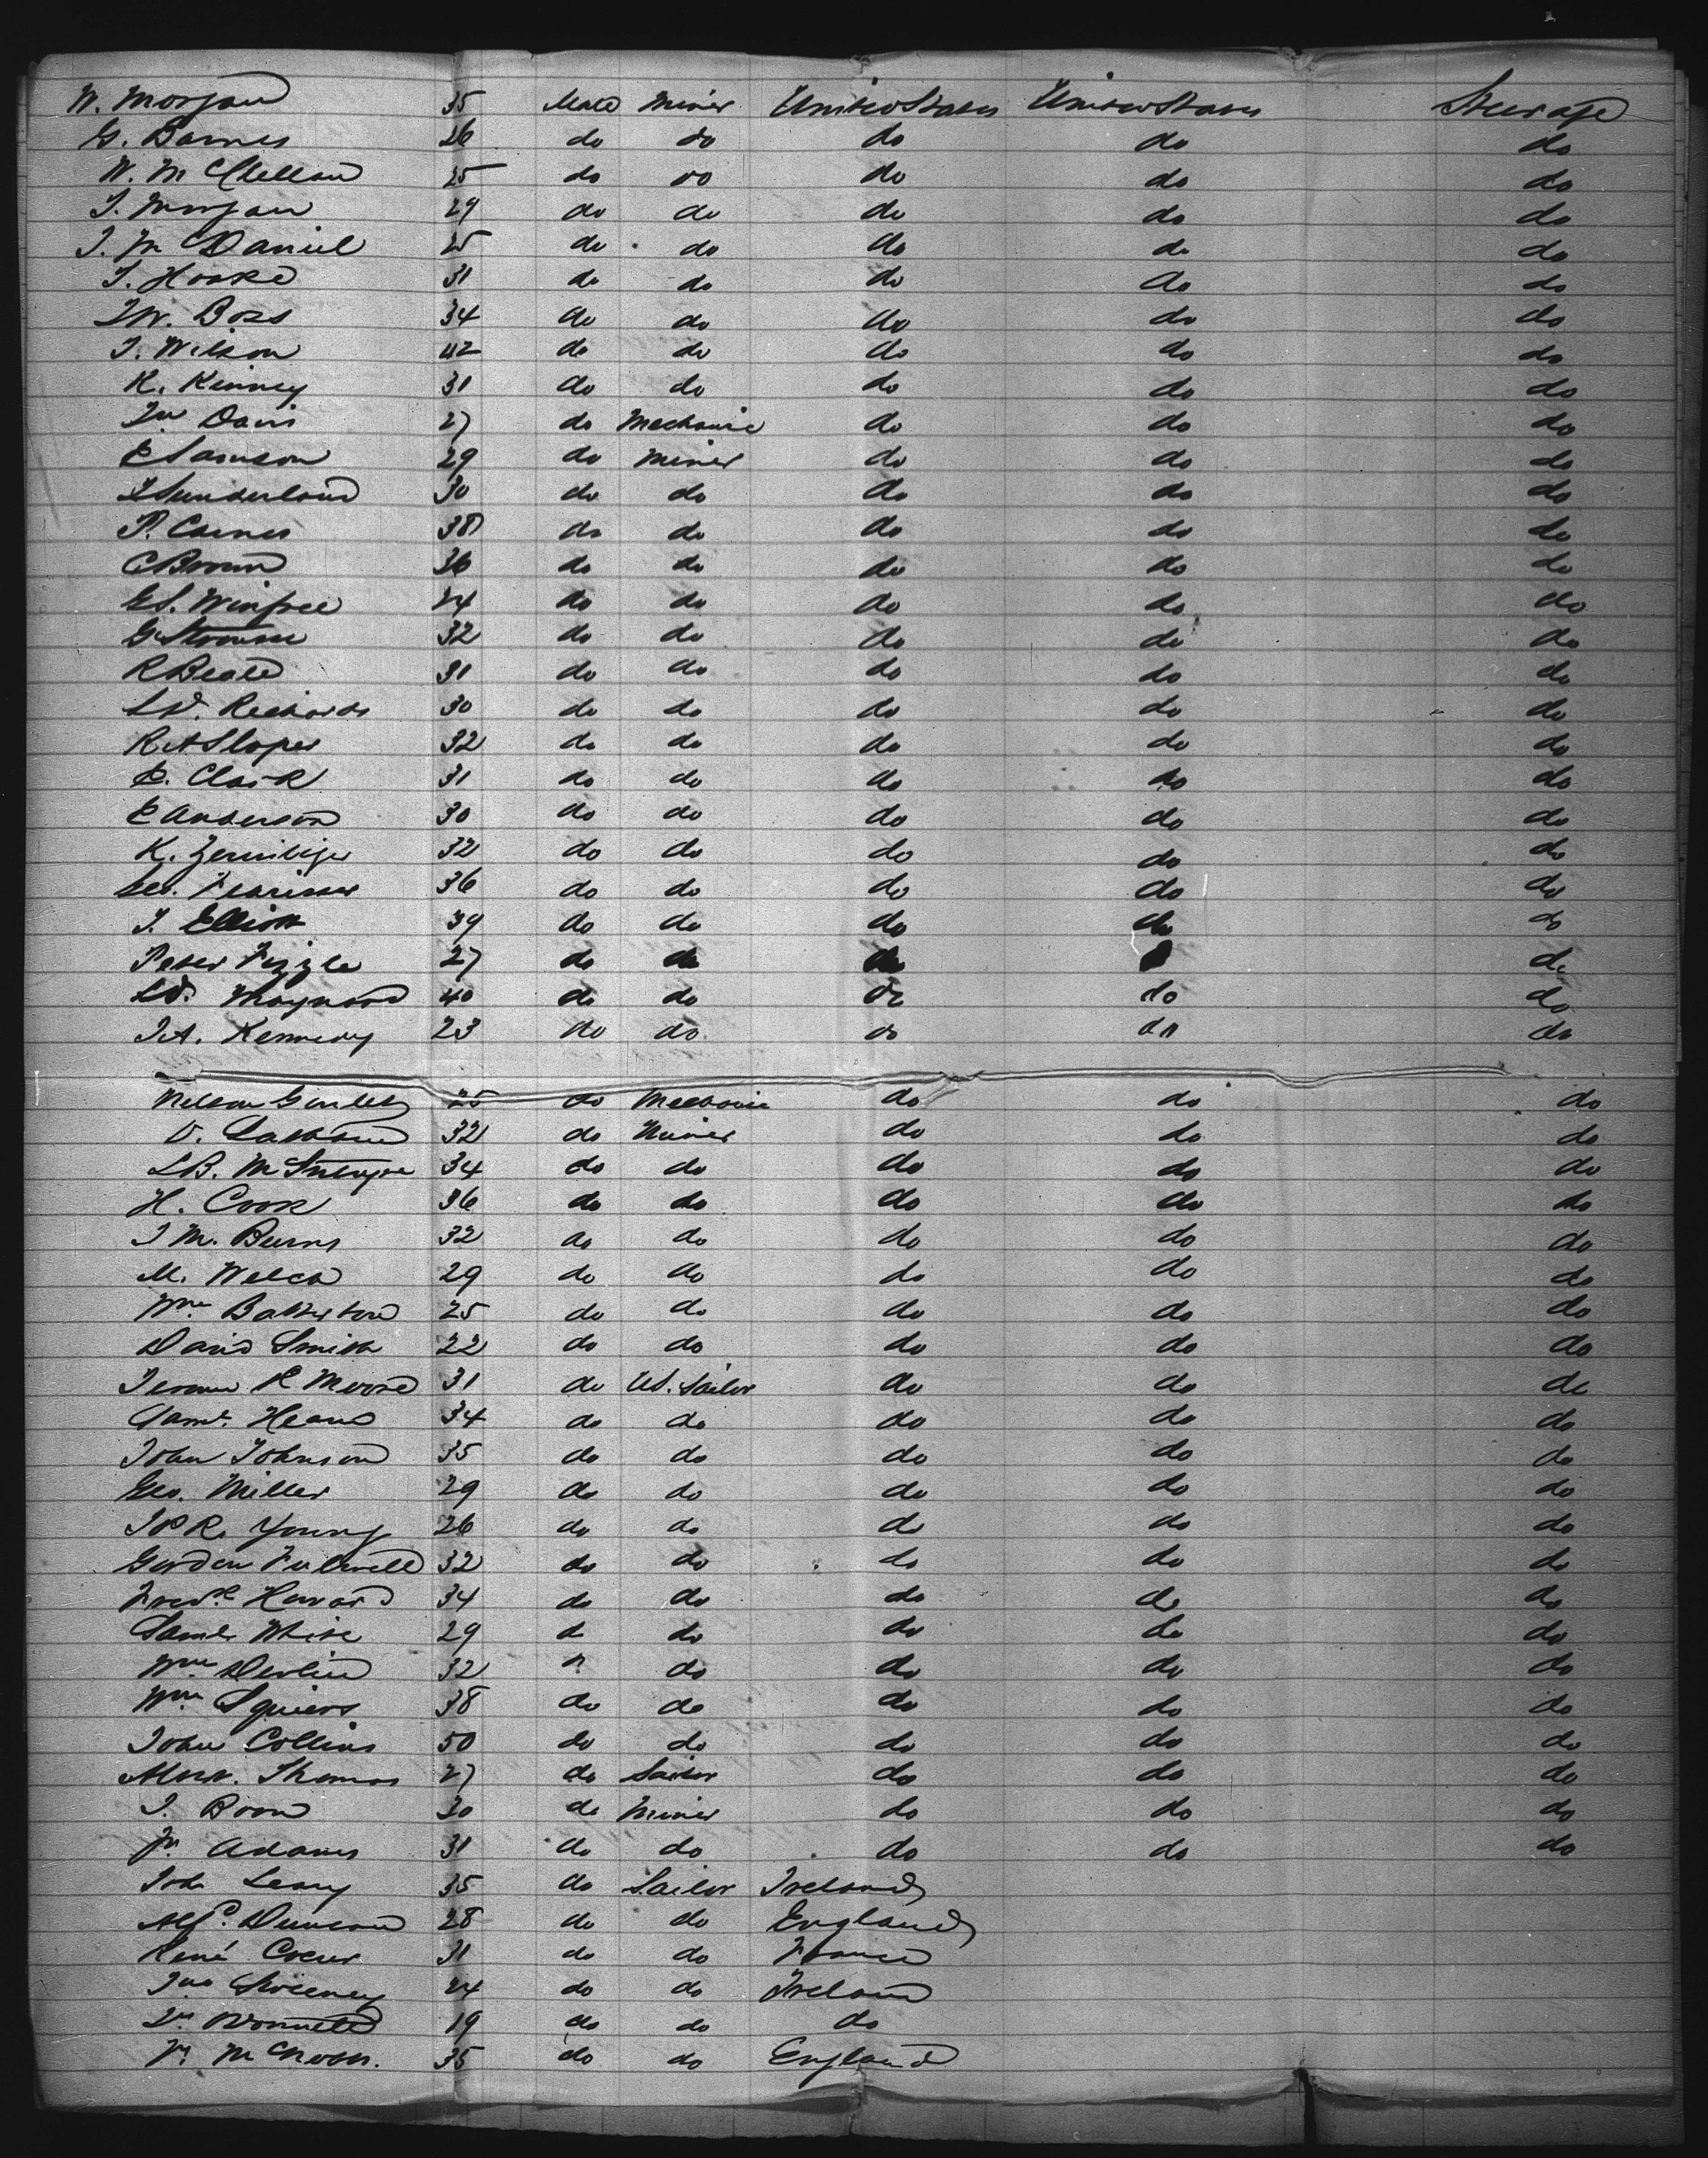 W. Morgan 35 Male Miner United States United States Steerage
G. Barnes 26 do do do do do
W. McClellan 25 do do do do do
J. Morgan 29 do do do do do
J. McDaniel 25 do do do do do
J. Hooke 31 do do do do do
J.W. Boss 34 do do do do do
J. Wilson 42 do do do do do
K. Kinney 31 do do do do do
Davis 27 do Mechanic do do do
E Samson 29 do Miner do do do
J Sunderland 30 do do do do do
P. Carnes 38 do do do do do
C Brown 36 do do do do do
G.S. Winfree 24 do do do do do
G 32 do do do do do
R Beale 31 do do do do do
Richards 30 do do do do do
R A Sloper 32 do do do do do
E. Clark 31 do do do do do
E Anderson 30 do do do do do
K. 32 do do do do do
Geo. 36 do do do do do
J. Elliott 39 do do do do do
Peter Fizzle 27 do do do do
Maynard 40 do do do do do
J.A. Kennedy 23 do do do do do
Nelson 25 do Mechanic do do do
32 do Miner do do do
L.B. 34 do do do do do
H. Cook 36 do do do do do
J M. Burns 32 do do do do do
M. Welch 29 do do do do do
Wm Batterton 25 do do do do do
David Smith 22 do do do do do
Moore 31 do US. Sailor do do do
Saml. 34 do do do do do
John Johnson 35 do do do do do
Geo. Miller 29 do do do do do
J P R. Young 26 do do do do do
Gordon Fulwell 32 do do do do do
Fredk 34 do do do do do
Saml. White 29 d do do do do
Wm Devlin 32 do do do do
Wm Squiers 38 do do do do do
John Collins 50 do do do do do
Thomas 27 do Sailor do do do
J. Boon 30 do Miner do do do
Adams 31 do do do do do
Leary 35 do Sailor Ireland
Duncan 28 do do England
René 31 do do France
Jno Sweeney 24 do do Ireland
19 do do do
35 do do England